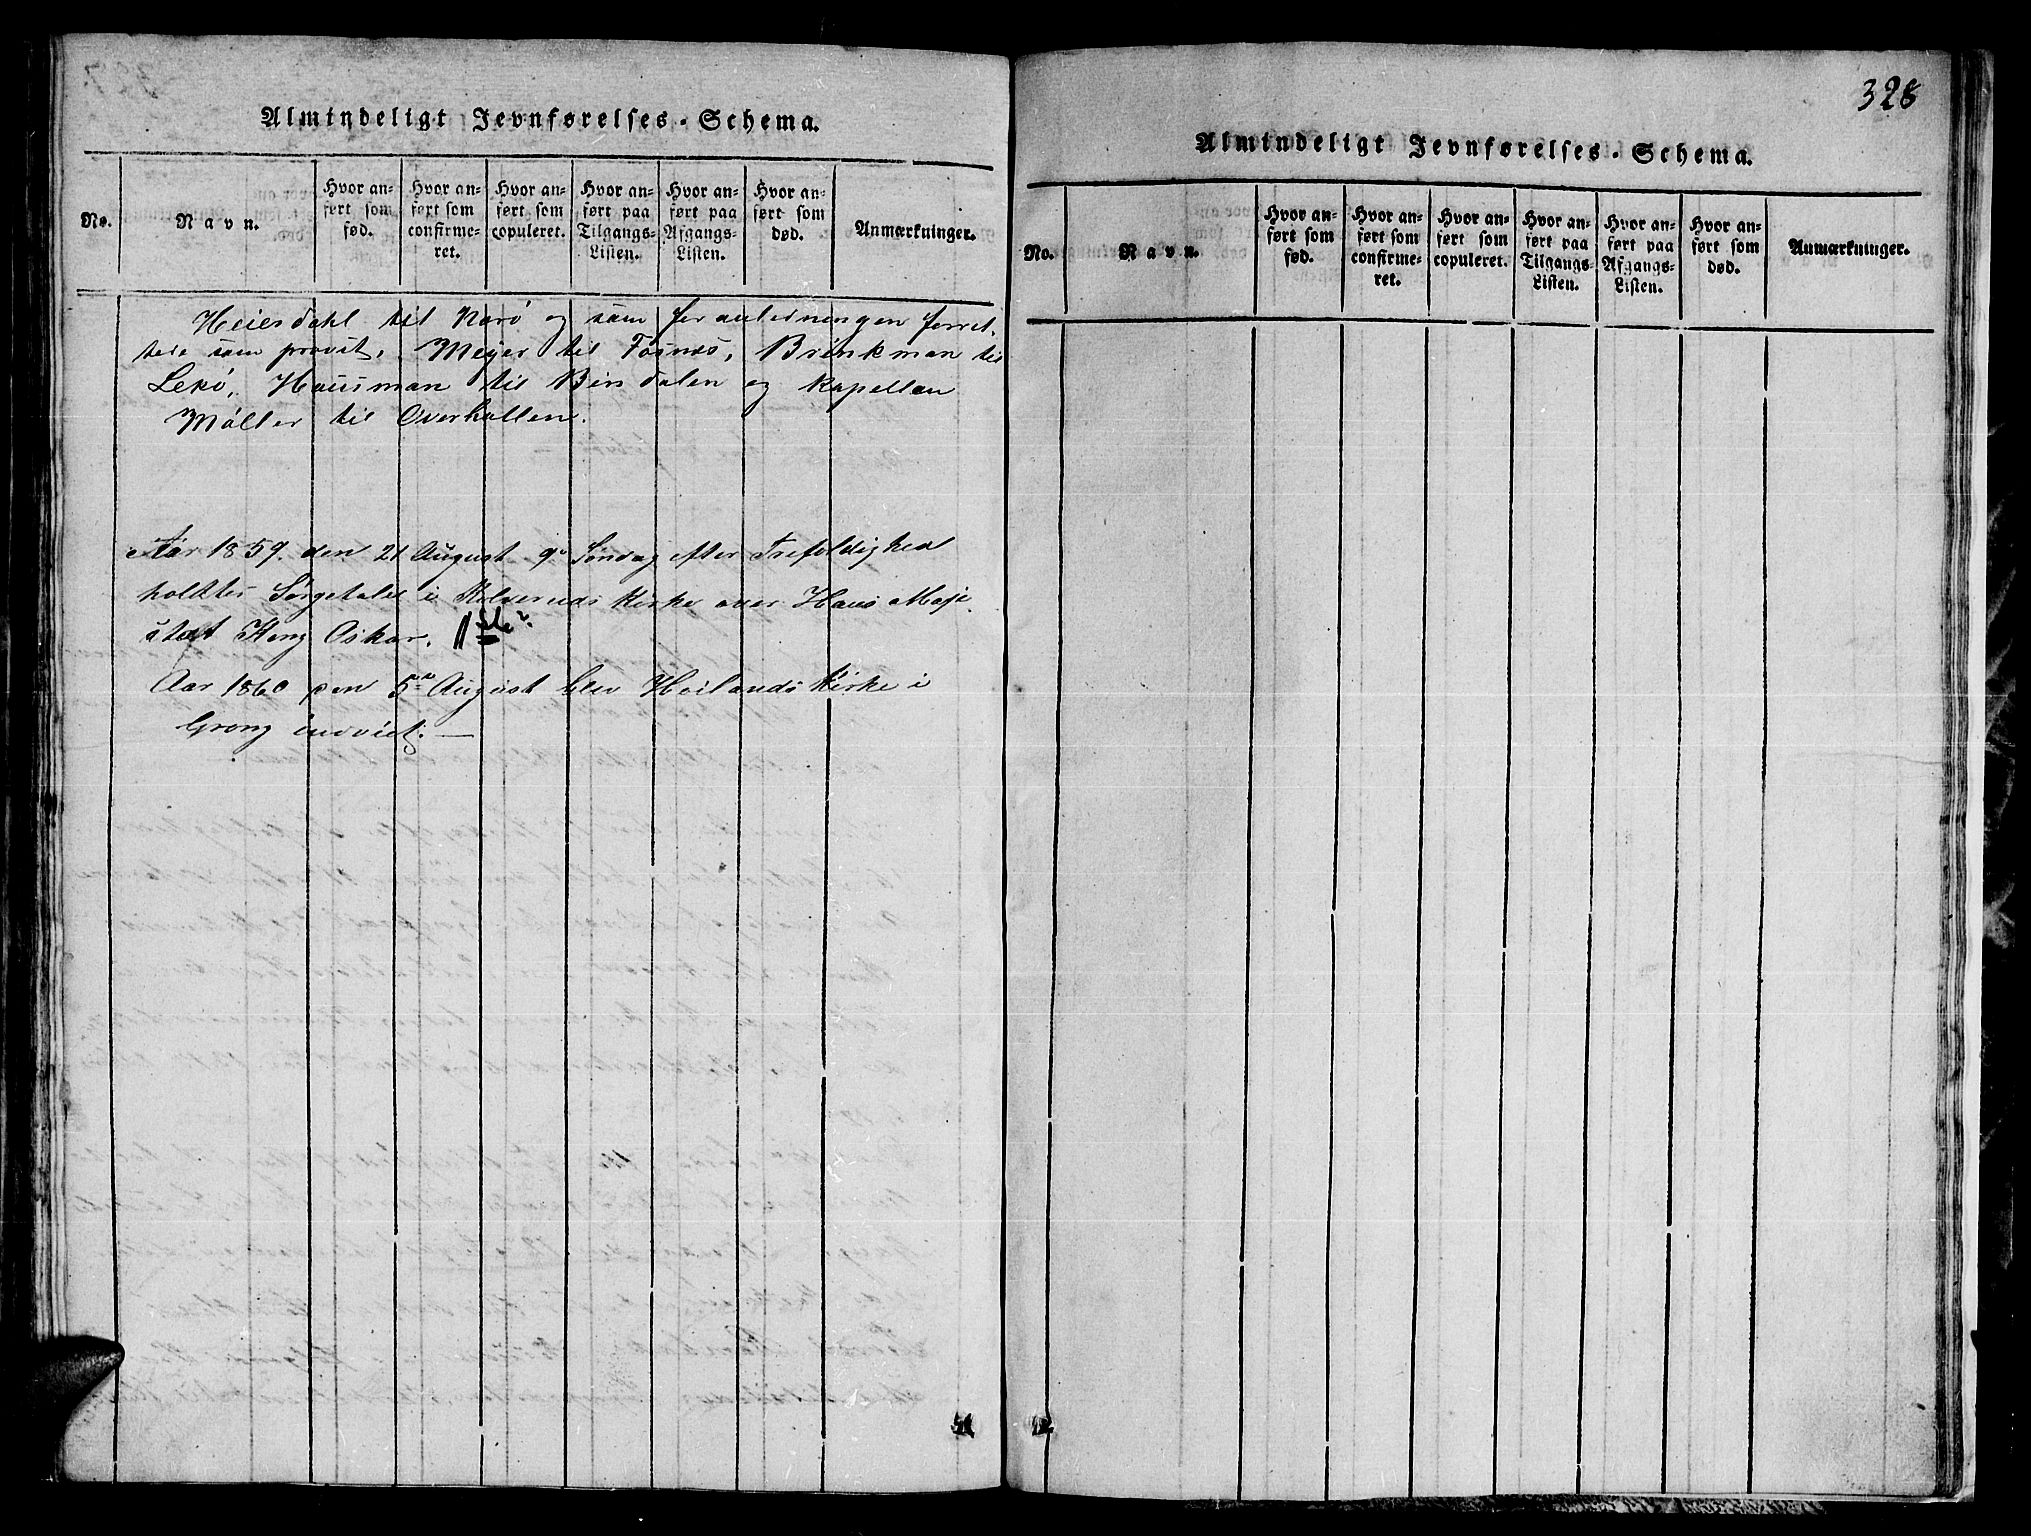 Almindeligt Jevnførelses-Schema.
No.
Navn.
Hvor an-
ført som
fød.
Hvor an-
ført som
confirme-
ret.
Hvor an-
ført som
copuleret.
Hvor an-
ført paa
Tilgangs-
Listen.
Hvor an-
ført paa
Afgangs-
Listen.
Hvor an-
ført som
død.
Anmærkninger.
Heiesdahl til Narø og som for anledningen forret-
tede som provst, Meyer til Fosnæs, Brinkman til
Lekø, Hausman til Bin dalen og kapellan
Møller til Overhallen.
Aar 1859. den 21 August 9de Søndag efter Trefoldighed
holdtes Sørgetaler i Kolvereids Kirke over Hans Maje
stæt Kong Oskar. 1ste
Aar 1860 den 5te August blev Høilands Kirke i
Grong indviet. —
328
Almindeligt Jevnførelses-Schema.
No.
Navn.
Hvor an-
ført som
fød.
Hvor an-
ført som
confirme-
ret.
Hvor an-
ført som
copuleret.
Hvor an-
ført paa
Tilgangs-
Listen.
Hvor an-
ført paa
Afgangs-
Listen.
Hvor an-
ført som
død.
Anmærkninger.